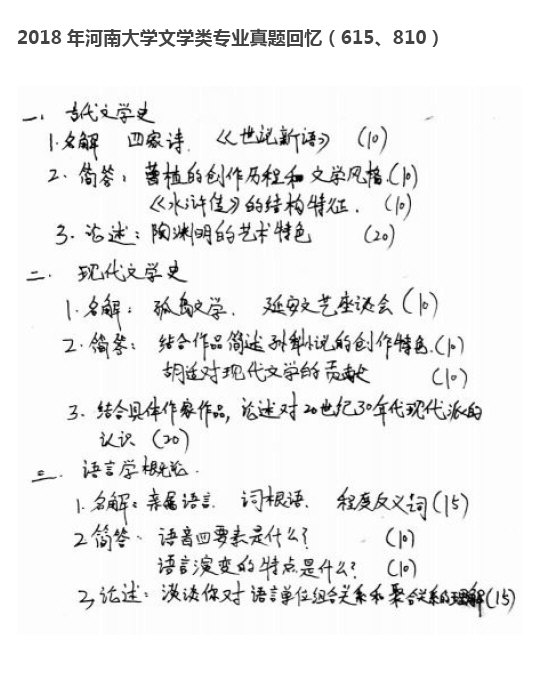 2018 年河南大学文学类专业真题回忆（615、810）
一、古代文学史
1.名解 四家诗. 《世说新语》 (10)
2. 简答: 曹植的创作历程和文学风格.(10)
《水浒传》的结构特征. (10)
3. 论述: 陶渊明的艺术特色 (20)
二. 现代文学史
1. 名解: 孤岛文学. 延安文艺座谈会 (10)
2. 简答: 结合作品简述孙犁小说的创作特色.(10)
胡适对现代文学的贡献 (10)
3. 结合具体作家作品, 论述对20世纪30年代现代派的
认识 (20)
三. 语言学概论.
1. 名解: 亲属语言. 词根语. 程度反义词 (15)
2 简答. 语音四要素是什么? (10)
语言演变的特点是什么? (10)
3, 论述: 谈谈你对语言单位组合关系和聚合关系的理解(15)